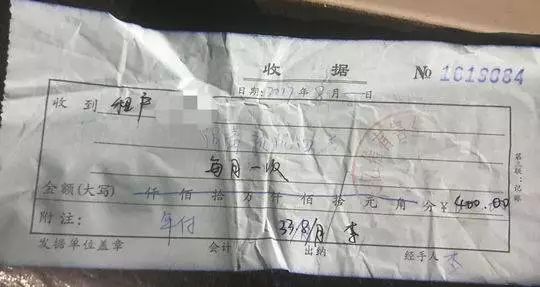 收 据
№ 1618084
日期:2017年8月 日
收 到 租户
每月一收
金额(大写) 仟 佰 拾 万 仟 佰 拾 元 角 分 ¥400.00
附注: 年付 338/月 李
发据单位盖章 会计 出纳 经手人 李
第三联:记账